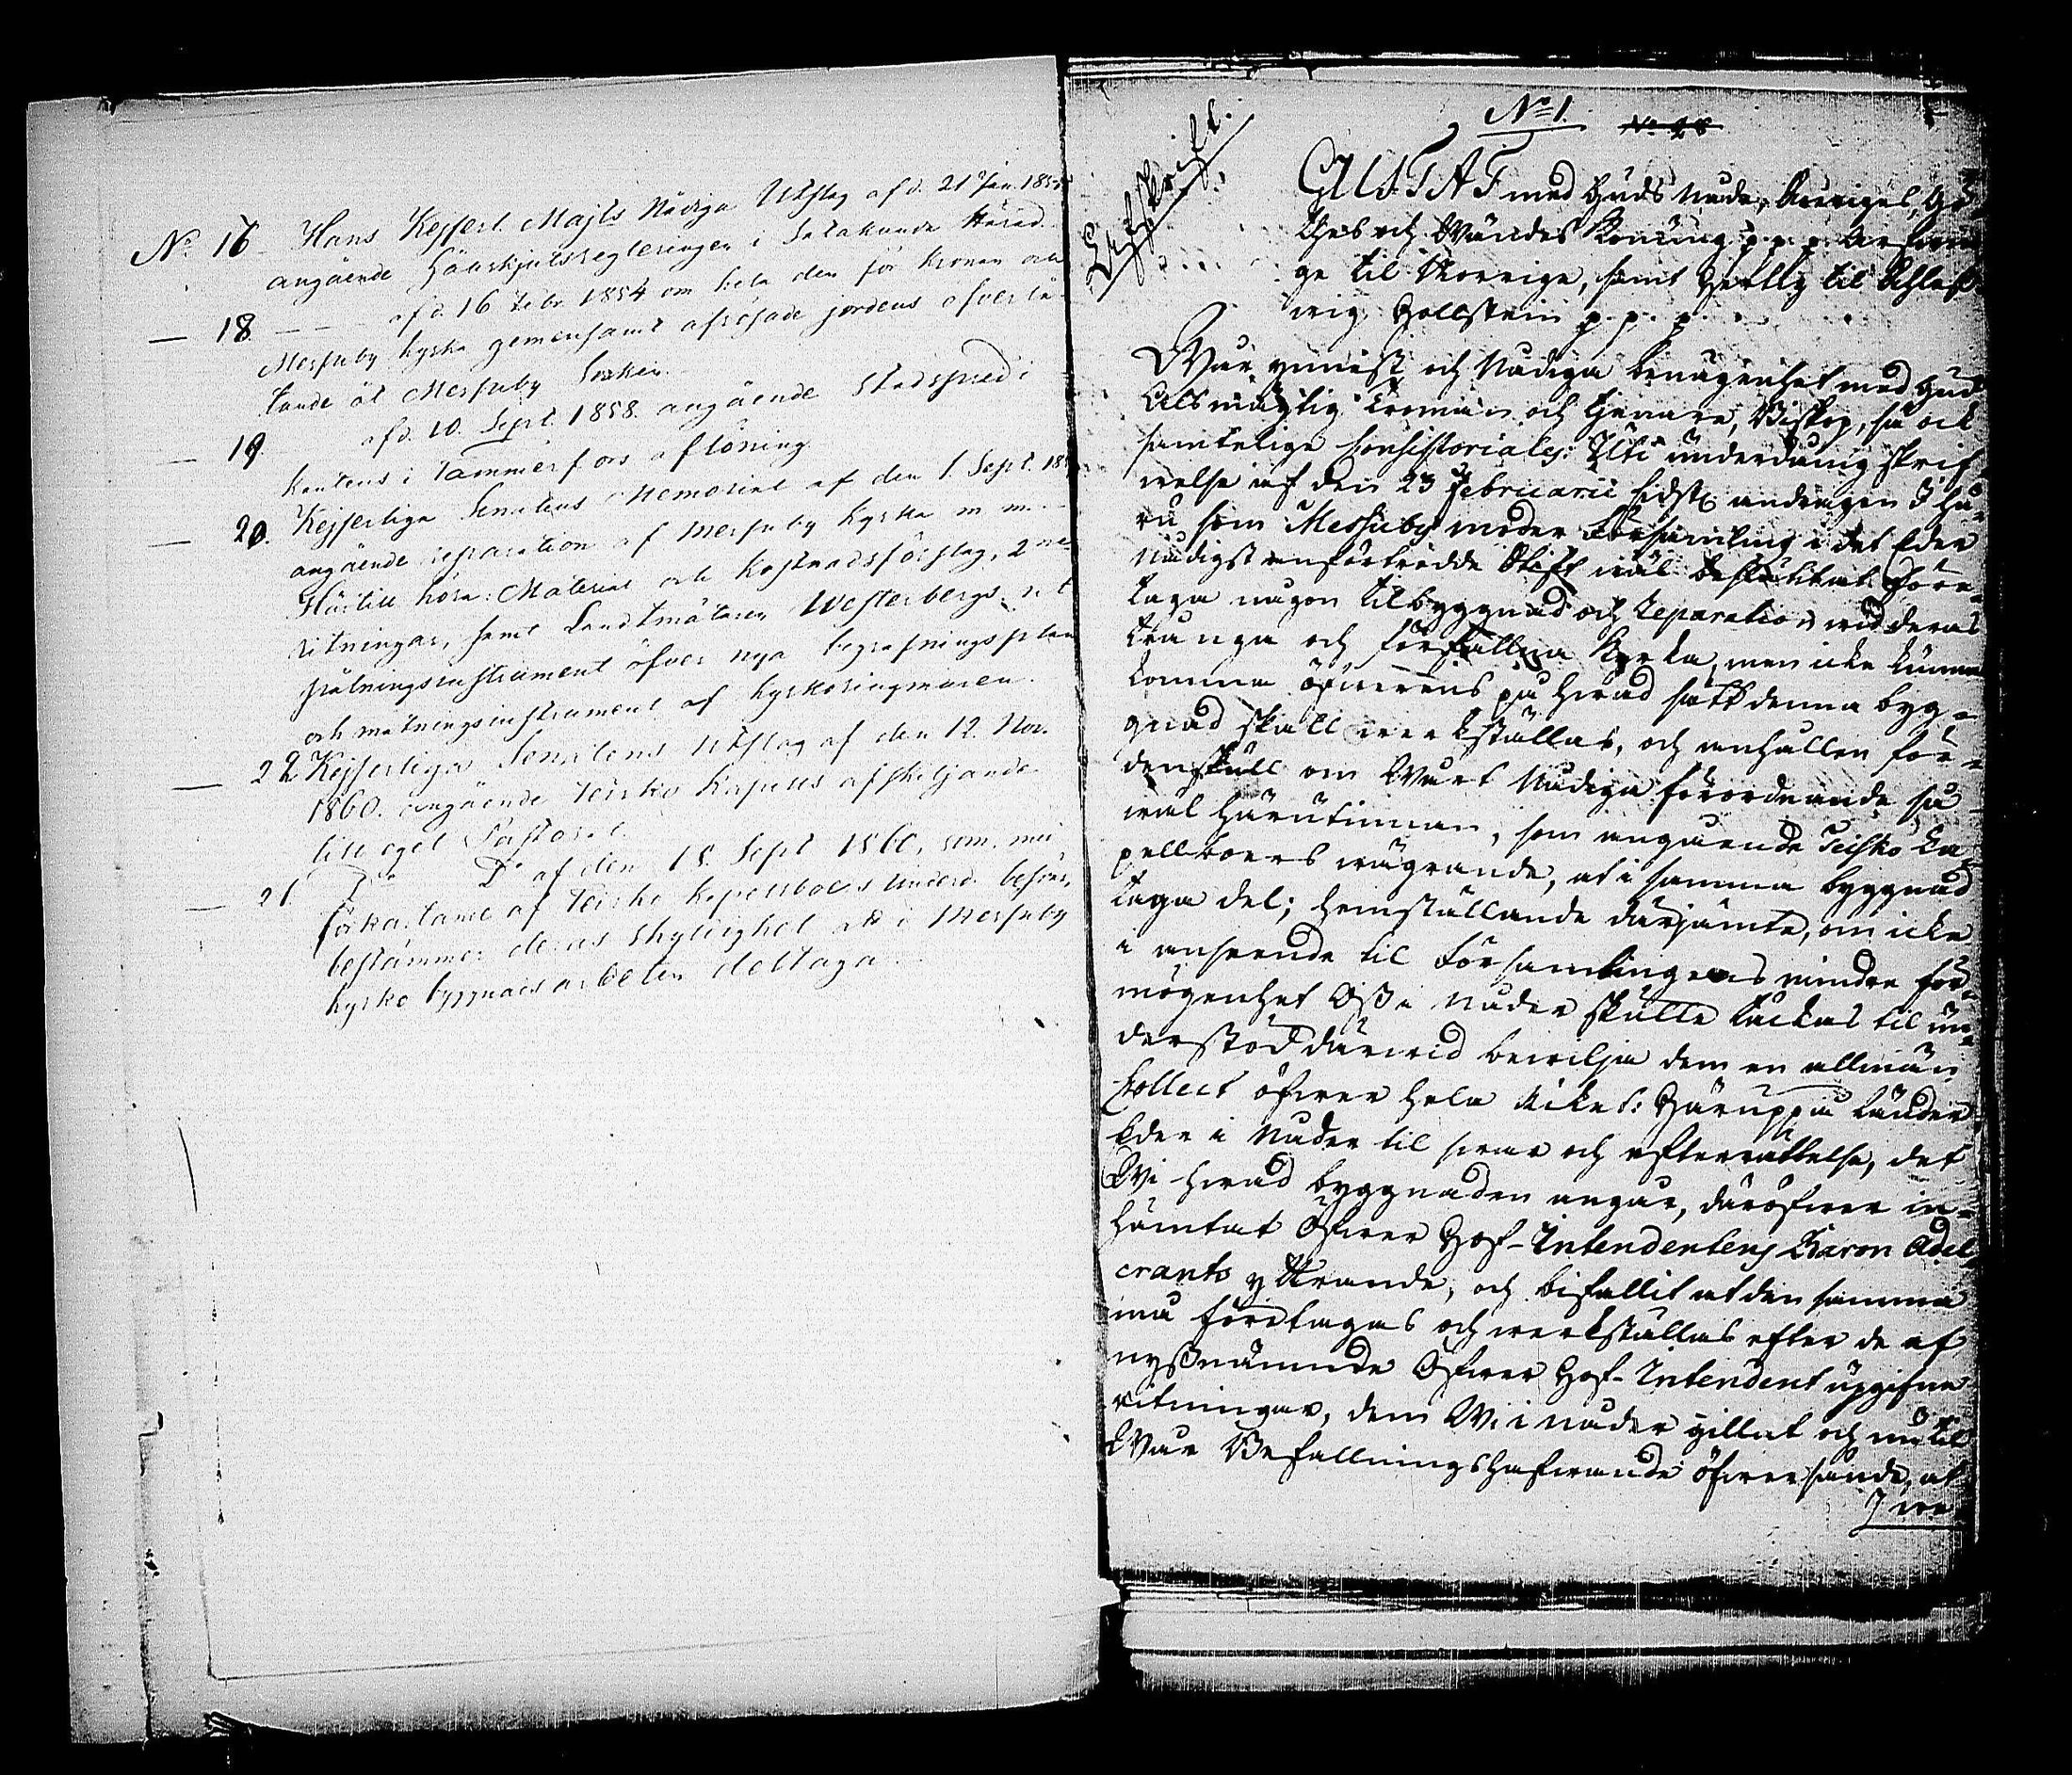 No 17 Hans Kejserl. Majts Nådiga Utslag af d. 21 Jan. 185
angående Hållskjutsregleringen i Satakunda Härad.
— 18. — — af d. 16 Febr. 1854 om hela den för kronan och
Messuby kyrka gemensamt afrösade jordens öfverlå-
tande åt Messuby Socken.
— 19 afd. 10. Sept. 1858. angående Stadspredi-
kantens i Tammerfors aflöning.
— 20. Kejserliga Senatens Memorial af den 1. Sept. 18
angående reparation af Messuby Kyrka m m.
Härtill höra: Material och Kostnadsförslag, 2ne
ritningar, samt Landtmätaren Westerbergs ut-
stakningsinstrument öfver nya begrafningsplan
och mätningsinstrument af kyrkoringmuren.
— 22 Kejserliga Senatens Utslag af den 12. Nov.
1860. angående Teisko Kapells afskiljande
till eget Pastorat.
— 21 Do Do af den 18. Sept 1860, som med
förkastande af Teisko kapellboers underd. besvär,
bestämmer deras skyldighet att i Messuby
kyrko byggnadsarbeten deltaga.
No 1. No 28
Afskrift.
GUSTAF med Guds Nåde, Sveriges, Gö-
thes och Wändes Konung p. p. p. Arfwin-
ge til Norrige, samt Hertig til Schles-
wig Hollstein p. p. p.
Wår ynnest och Nådiga benägenhet med Gud
Alsmägtig Troman och Tjenare, Biskop, så ock
samtelige Consistoriales: Uti underdånig skrif-
welse af den 23 Februarii sidstl. andragen I hu-
ru som Messuby moder Församling i det Eder
Nådigst anförtrodde Stift wäl beslutat före-
taga någon tilbyggnad och Reparation wid deras
trånga och förfallna Kyrka, men icke kunna
komma öfwerens på hwad sätt denna byg-
gnad skall werkställas, och anhållen för-
denskull om Wårt Nådiga förordnande så
wäl härutinnan, som angående Teisko Ca-
pellboers wägrande, at i samma byggnad
taga del; hemställande därjämte, om icke
i anseende til Församlingens mindre för-
mögenhet Oss i Nåder skulle täckas til un-
derstöd därwid bewilja dem en allmän
Collect öfwer hela Riket: Häruppå länder
Eder i Nåder til swar och efterrättelse, det
Wi hwad byggnaden angår, däröfwer in-
hämtat Öfwer Hof-Intendentens Baron Adel-
crants yttrande, och bifallit at den samma
må företagas och werkställas efter de af
nyssnämnde Öfwer Hof-Intendent upgifne
ritningar, dem Wi i nåder gillat och nu til
Wår Befallningshafwande öfwersände, at
I we-